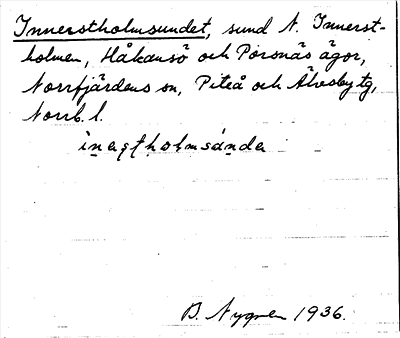 Innerstholmsundet, sund N. Innerst-
holmen, Håkansö och Porsnäs ägor,
Norrfjärdens sn, Piteå och Älvsby tg,
Norrb. l.
B. Nygren 1936.